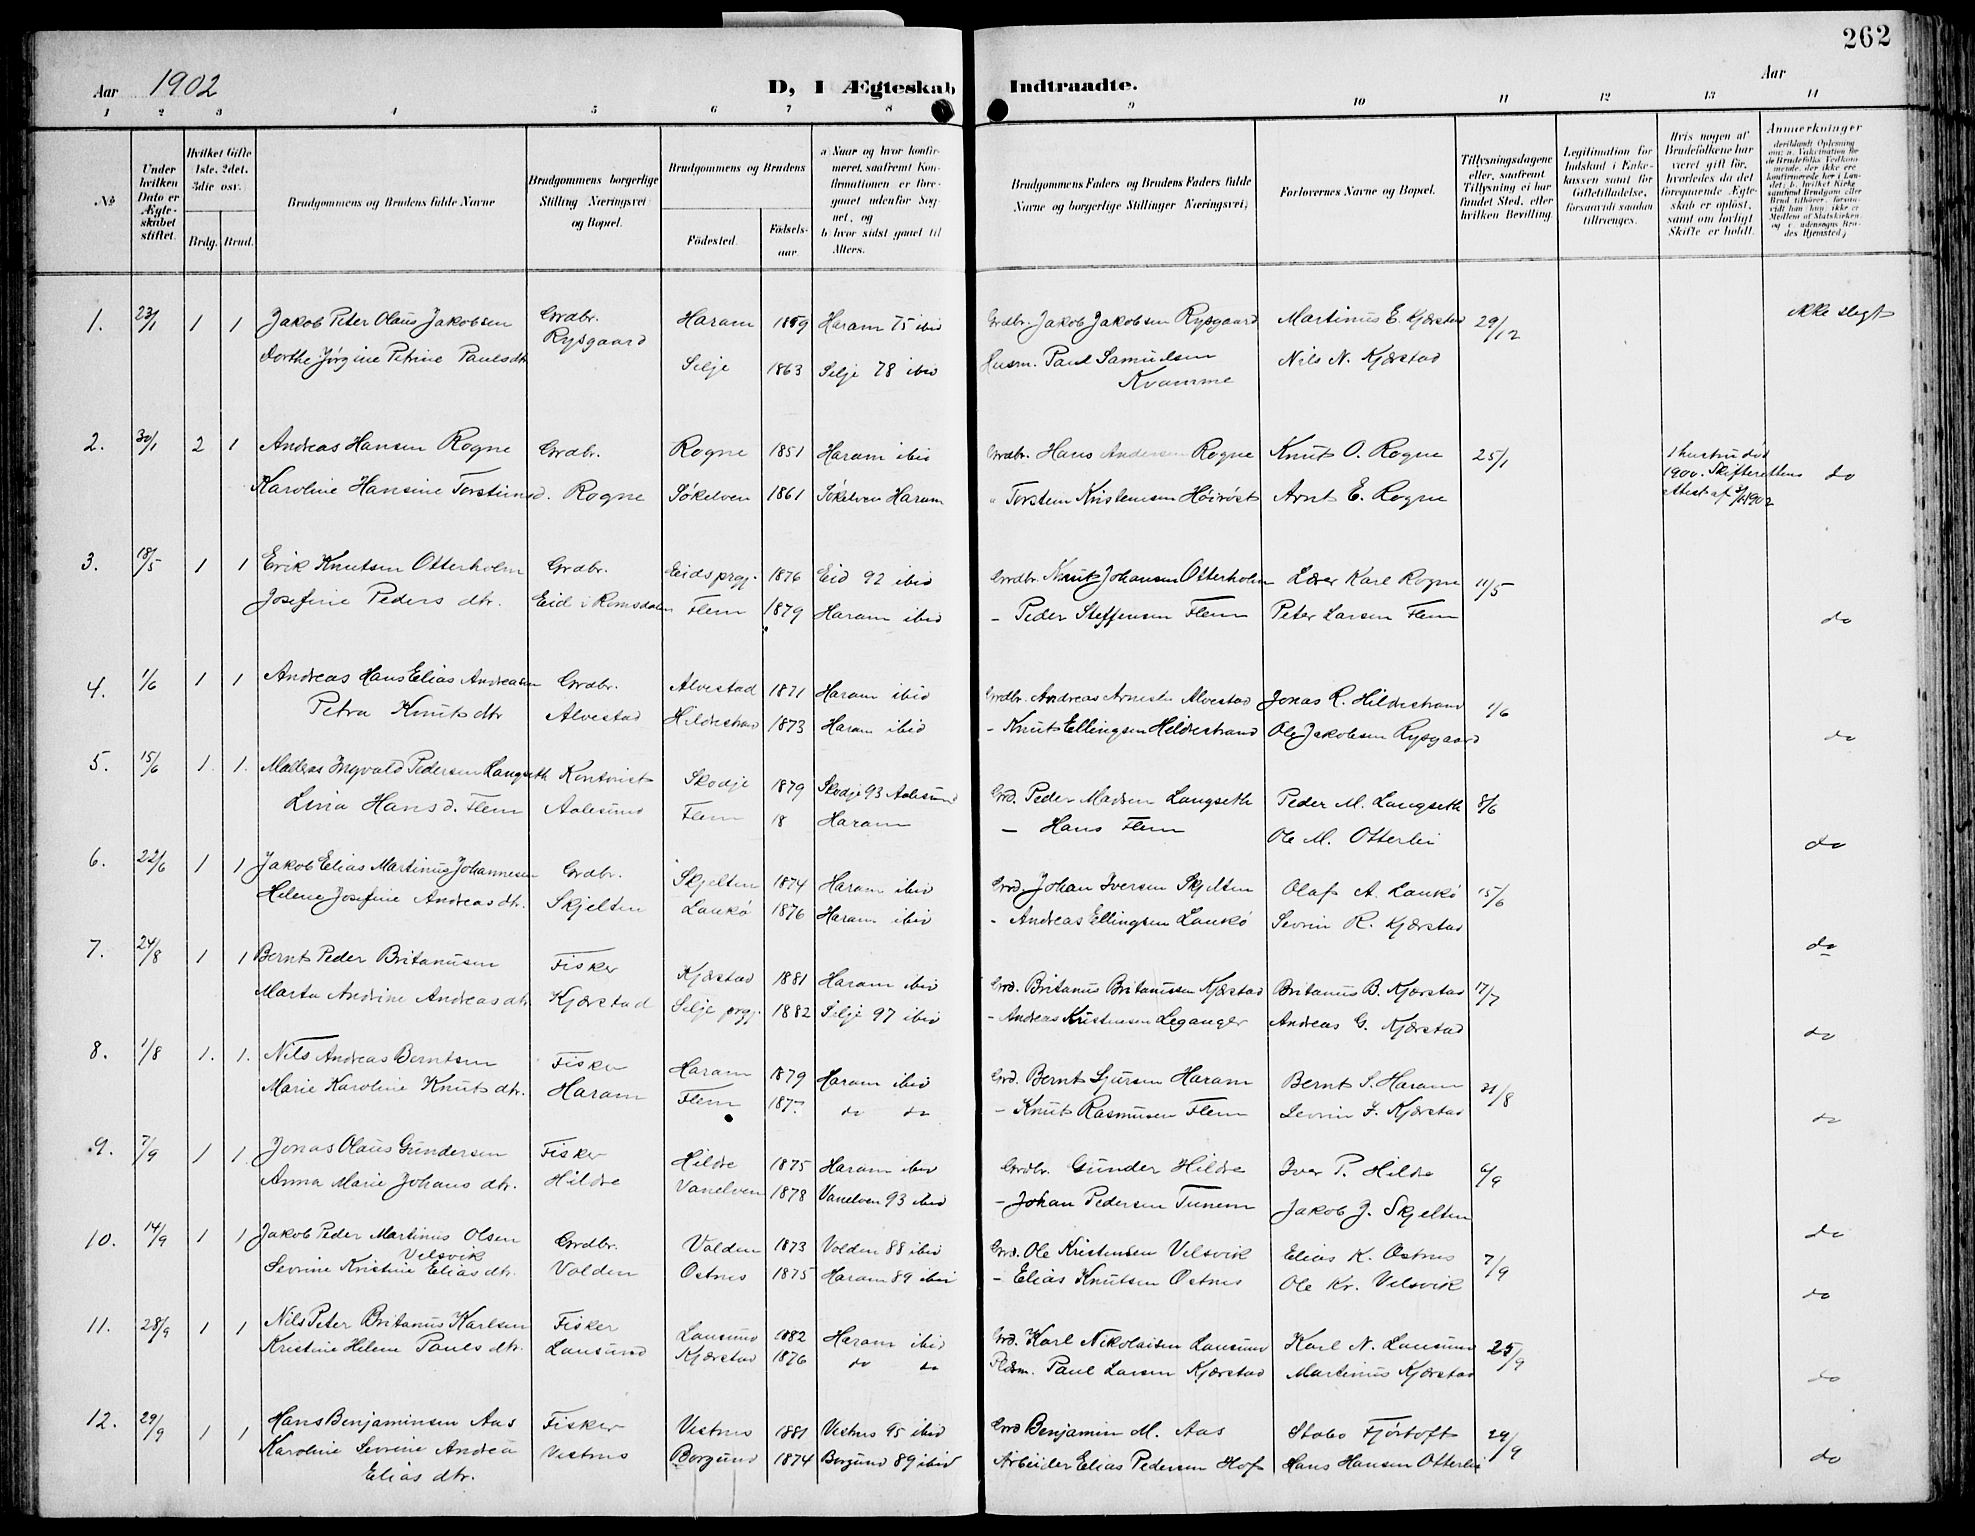 262
Aar 1902
D, 1 Ægteskab Indtraadte.
Aar
1 2 3 4 5 6 7 8 9 10 11 12 13 14
№
Under hvilken Dato er Ægteskabet stiftet.
Hvilket Gifte 1ste, 2det, 3die osv.
Brdg. Brud.
Brudgommens og Brudens fulde Navne
Brudgommens borgerlige Stilling Næringsvei og Bopæl.
Brudgommens og Brudens
Födested.
Födselsaar
a) Naar og hvor konfirmeret, saafremt Konfirmationen er foregaaet udenfor Sognet, og
b) hvor sidst gaaet til Alters.
Brudgommens Faders og Brudens Faders fulde Navne og borgerlige Stillinger Næringsvei;
Forlovernes Navne og Bopæl.
Tillysningsdagene eller, saafremt Tillysning ei har fundet Sted, efter hvilken Bevilling.
Legitimation for Indskud i Enkekassen samt for Giftetilladelse, forsaavidt saadan tiltrænges.
Hvis nogen af Brudefolkene har været gift før, hvorledes da det foregaaende Ægteskab er opløst, samt om lovligt Skifte er holdt.
Anmerkninger
1. 23/1 1 1 Jakob Peter Olaus Jakobsen Grdbr. Haram 1859 Haram 75 ibid Grdbr. Jakob Jakobsen Rysgaard Martinus E. Kjærstad 29/12 ikke slegt
Dorthe Jørgine Petrine Paulsdtr Rysgaard Selje 1863 Selje 78 ibid Husm. Paul Samuelsen Kvamme Nils N. Kjærstad
2. 30/1 2 1 Andreas Hansen Rogne Grdbr. Rogne 1851 Haram ibid Grdbr. Hans Andersen Rogne Knut O. Rogne 25/1 1 hustru død
Karoline Hansine Torstensd. Rogne Søkelven 1861 Søkelven Haram " Torsten Kristensen Hoirøst Arnt E. Rogne 1900. Skifterettens attest af 1902 do
3. 18/5 1 1 Erik Knutsen Otterholm Grdbr. Eidsprgj. 1876 Eid 92 ibid Grdbr. Knut Johansen Otterholm Lærer Karl Rogne 11/5
Josefine Peders dtr. Eid i Romsdalen Flem 1879 Haram ibid - Peder Steffensen Flem Peter Larsen Flem do
4. 1/6 1 1 Andreas Hans Elias Andreasen Grdbr. Alvestad 1871 Haram ibid Grdbr. Andreas Arnesen Alvestad Jonas R. Hildrestrand 1/6
Petra Knuts dtr Alvestad Hildrestrand 1873 Haram ibid - Knut Ellingsen Hildrestrand Ole Jakobsen Rysgaard do
5. 15/6 1. 1. Mathias Ingvald Pedersen Langseth Kontorist Skodje 1879 Skodje 93 Aalesund Grd. Peder Madsen Langseth Peder M. Langseth 8/6
Lina Hans d. Flem Aalesund Flem 18 Haram - Hans Flem Ole M. Otterlei do
6. 22/6 1 1 Jakob Elias Martinus Johannesen Grdbr. Skjelten 1874 Haram ibid Grd. Johan Iversen Skjelten Olaf A. Laukø 15/6
Helene Josefine Andreas dtr. Skjelten Laukø 1876 Haram ibid - Andreas Ellingsen Laukø Sevrin R. Kjærstad do
7. 24/8 1 1 Bernt Peder Britanusen Fisker Kjærstad 1881 Haram ibid Grd. Britanus Britanussen Kjærstad Britanus B. Kjærstad 17/7
Marta Andrine Andreas dtr Kjærstad Selje prgj. 1882 Selje 97 ibid - Andreas Kristensen Leganger Andreas G. Kjærstad do
8. 1/8 1. 1. Nils Andreas Berntsen Fisker Haram 1879 Haram ibid Grd. Bernt Sjursen Haram Bernt S. Haram 31/8
Marie Karoline Knuts dtr. Haram Flem 1877 do do - Knut Rasmusen Flem Sevrin F. Kjærstad do
9. 7/9 1 1. Jonas Olaus Gundersen Fisker Hildre 1875 Haram ibid Grdbr. Gunder Hildre Iver P. Hildre 6/9
Anna Marie Johans dtr. Hildre Vanelven 1878 Vanelven 93 ibid - Johan Pedersen Tunem Jakob J. Skjelten do
10. 14/9 1 1 Jakob Peder Martinus Olsen Velsvik Grdbr. Volden 1873 Volden 88 ibid Grd. Ole Kristensen Velsvik Elias K. Østnes 7/9
Sevrine Kristine Elias dtr. Volden Østnes 1875 Haram 89 ibid - Elias Knutsen Østnes Ole Kr. Velsvik do
11. 28/9 1 1 Nils Peter Britanus Karlsen Fisker Lausund 1882 Haram ibid Grd. Karl Nikolaisen Lausund Karl N. Lausund 25/9
Kristine Helene Pauls dtr. Lausund Kjærstad 1876 do do Pladsm. Paul Larsen Kjærstad Martinus Kjærstad do
12. 29/9 1 1 Hans Benjaminsen Aas Fisker Vestnes 1881 Vestnes 95 ibid Grd Benjamin M. Aas Fjørtoft 29/9
Karoline Sevrine Andrea Elias dtr. Vestnes Borgund 1874 Borgund 89 ibid Arbeider Elias Pedersen Hof Hans Hansen Otterlei do